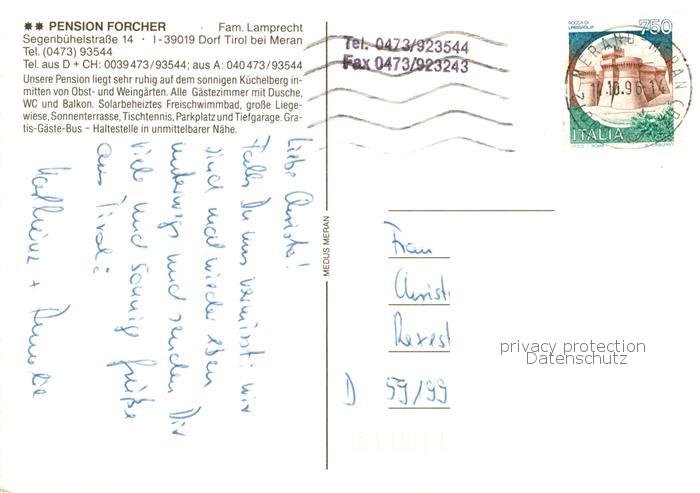 ✷✷ PENSION FORCHER · Fam. Lamprecht
Segenbühelstraße 14 · I-39019 Dorf Tirol bei Meran
Tel. (0473) 93544
Tel. aus D + CH: 0039 473/93544; aus A: 040 473/93544
Unsere Pension liegt sehr ruhig auf dem sonnigen Küchelberg in-
mitten von Obst- und Weingärten. Alle Gästezimmer mit Dusche,
WC und Balkon. Solarbeheiztes Freischwimmbad, große Liege-
wiese, Sonnenterrasse, Tischtennis, Parkplatz und Tiefgarage. Gra-
tis-Gäste-Bus – Haltestelle in unmittelbarer Nähe.
Tel. 0473/923544
Fax 0473/923243
ROCCA DI
URBISAGLIA
750
MERANO MERAN
14.10.96-14
ITALIA
I.P.Z.S. - ROMA
Liebe Christa!
Falls Du uns vermißt: wir
sind mal wieder eben
unterwegs und senden Dir
viele und sonnige Grüße
aus Tirol:
Karlheinz +
MEDUS MERAN
Frau
Christ
D 59199
privacy protection
Datenschutz